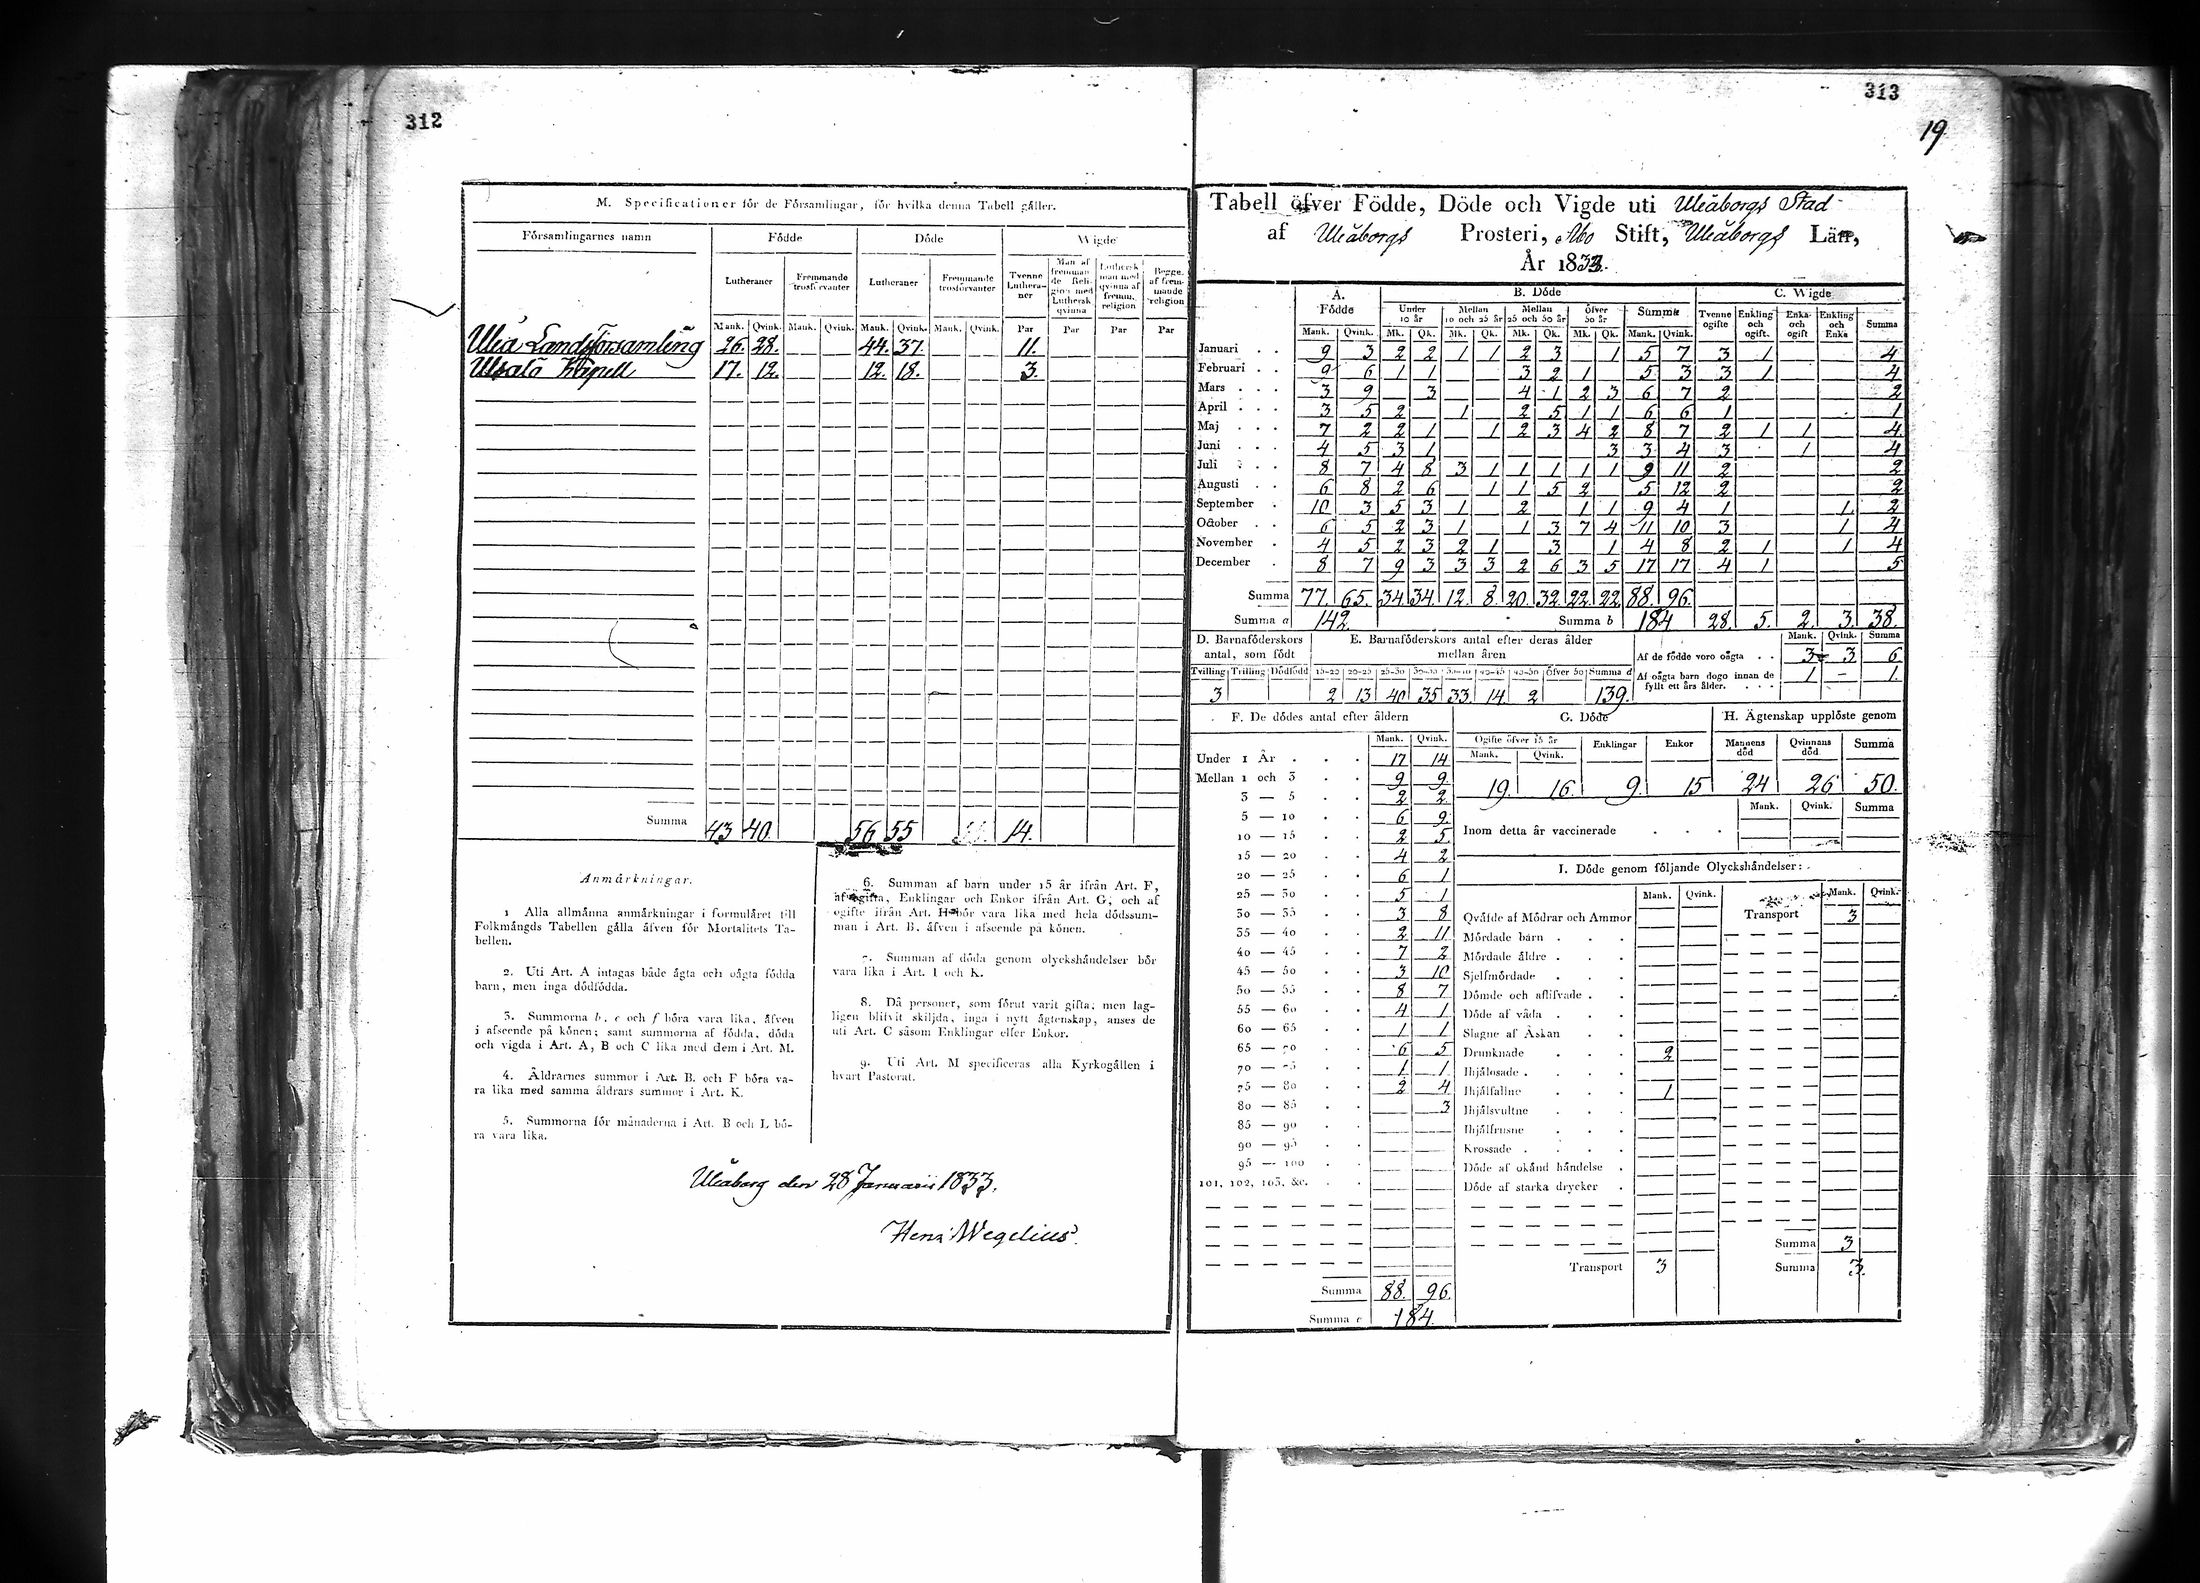 312
M. Specificationer för de Församlingar, för hvilka denna Tabell gäller.
Församlingarnes namn Födde Döde Wigde
Lutheraner Fremmande trosförvanter Lutheraner Fremmande trosförvanter Tvenne Lutheraner Man af fremmande Religion med Luthersk qvinna Luthersk man med qvinna af fremm. religion Begge af fremmande religion
Mank. Qvink. Mank. Qvink. Mank. Qvink. Mank. Qvink. Par Par Par Par
Uleå Landsförsamling 26. 28. 44. 37. 11.
Kapell 17. 12. 12. 18. 3.
Summa 43 40. 56 55 14.
Anmärkningar.
1 Alla allmänna anmärkningar i formuläret till
Folkmängds Tabellen gälla äfven för Mortalitets Ta-
bellen.
2. Uti Art. A intagas både ägta och oägta födda
barn, men inga dödfödda.
3. Summorna b, c och f böra vara lika, äfven
i afseende på könen; samt summorna af födda, döda
och vigda i Art. A, B och C lika med dem i Art. M.
4. Åldrarnes summor i Art. B. och F böra va-
ra lika med samma åldrars summor i Art. K.
5. Summorna för månaderna i Art. B och L bö-
ra vara lika.
6. Summan af barn under 15 år ifrån Art. F,
af ogifta, Enklingar och Enkor ifrån Art. G, och af
ogifte ifrån Art. H bör vara lika med hela dödssum-
man i Art. B. äfven i afseende på könen.
7. Summan af döda genom olyckshändelser bör
vara lika i Art. I och K.
8. Då personer, som förut varit gifta, men lag-
ligen blifvit skiljda, ingå i nytt ägtenskap, anses de
uti Art. C såsom Enklingar eller Enkor.
9. Uti Art. M specificeras alla Kyrkogällen i
hvart Pastorat.
Uleåborg den 28 Januarii 1833.
Wegelius.
313
19.
Tabell öfver Födde, Döde och Vigde uti Uleåborgs Stad
af Uleåborgs Prosteri, Åbo Stift, Uleåborgs Län,
År 1833.
A. Födde B. Döde C. Wigde
Under 10 år Mellan 10 och 25 år Mellan 25 och 50 år Öfver 50 år Summa Tvenne ogifte Enkling och ogift. Enka och ogift Enkling och Enka Summa
Mank. Qvink. Mk. Qk. Mk. Qk. Mk. Qk. Mk. Qk. Mank. Qvink.
Januari 9 3 2 2 1 1 2 3 1 5 7 3 1 4
Februari 9 6 1 1 3 2 1 5 3 3 1 4
Mars 3 9 3 4 1 2 3 6 7 2 2
April 3 5 2 1 2 5 1 1 6 6 1 1
Maj 7 2 2 1 1 2 3 4 2 8 7 2 1 1 4
Juni 4 5 3 1 3 3 4 3 1 4
Juli 8 7 4 8 3 1 1 1 1 1 9 11 2 2
Augusti 6 8 2 6 1 1 5 2 5 12 2 2
September 10 3 5 3 1 2 1 1 9 4 1 1. 2
October 6 5 2 3 1 1 3 7 4 11 10 3 1 4
November 4 5 2 3 2 1 3 1 4 8 2 1 1 4
December 8 7 9 3 3 3 2 6 3 5 17 17 4 1 5
Summa 77. 65. 34. 34. 12. 8. 20. 32. 22. 22. 88. 96.
Summa a 142. Summa b 184 28. 5. 2. 3. 38.
D. Barnaföderskors antal, som födt E. Barnaföderskors antal efter deras ålder mellan åren Mank. Qvink. Summa
Af de födde voro oägta 3 3 6
Af oägta barn dogo innan de fyllt ett års ålder. 1 – 1.
Tvilling Trilling Dödfödd 15–20 20–25 25–30 30–35 35–40 40–45 45–50 Öfver 50 Summa d
3 2 13 40 35 33. 14. 2 139.
F. De dödes antal efter åldern G. Döde H. Ägtenskap upplöste genom
Mank. Qvink. Ogifte öfver 15 år Mank. Qvink. Enklingar Enkor Mannens död Qvinnans död. Summa
19. 16. 9. 15 24 26 50.
Under 1 År 17 14
Mellan 1 och 3 9 9.
3 — 5 2 2
5 — 10 6 9.
10 — 15 2 5.
15 — 20 4 2
20 — 25 6 1
25 — 30 5 1
30 — 35 3 8
35 — 40 2 11
40 — 45 7 2
45 — 50 3 10
50 — 55 8 7
55 — 60 4 1
60 — 65 1 1
65 — 70 6 5
70 — 75 1 1
75 — 80 2 4
80 — 85 3
85 — 90
90 — 95
95 — 100
101, 102, 103, &c.
Summa 88. 96.
Summa c 184.
Mank. Qvink. Summa
Inom detta år vaccinerade
I. Döde genom följande Olyckshändelser:
Mank. Qvink. Mank. Qvink.
Qväfde af Mödrar och Ammor Transport 3
Mördade barn
Mördade äldre
Sjelfmördade
Dömde och aflifvade
Döde af våda
Slagne af Åskan
Drunknade 2
Ihjälosade
Ihjälfallne 1
Ihjälsvultne
Ihjälfrusne
Krossade
Döde af okänd händelse
Döde af starka drycker
Summa 3
Transport 3 Summa 3.